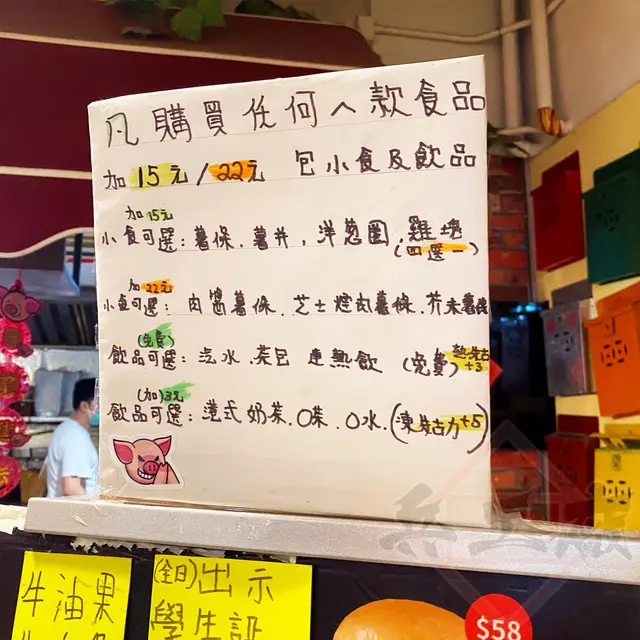 凡購買任何一款食品
加15元/22元 包小食及飲品
加15元
小食可選：薯條．薯井．洋葱圈．雞塊
(四選一)
加22元
小食可選：肉醬薯條．芝士燒肉薯條．芥末薯條
(免費)
飲品可選：汽水．菜包 連熱飲 (免費) 熱朱古+3
(加)3元
飲品可選：港式奶茶．O茶．O水．(凍朱古力+5)
牛油果
(全日)出示
學生証
$58